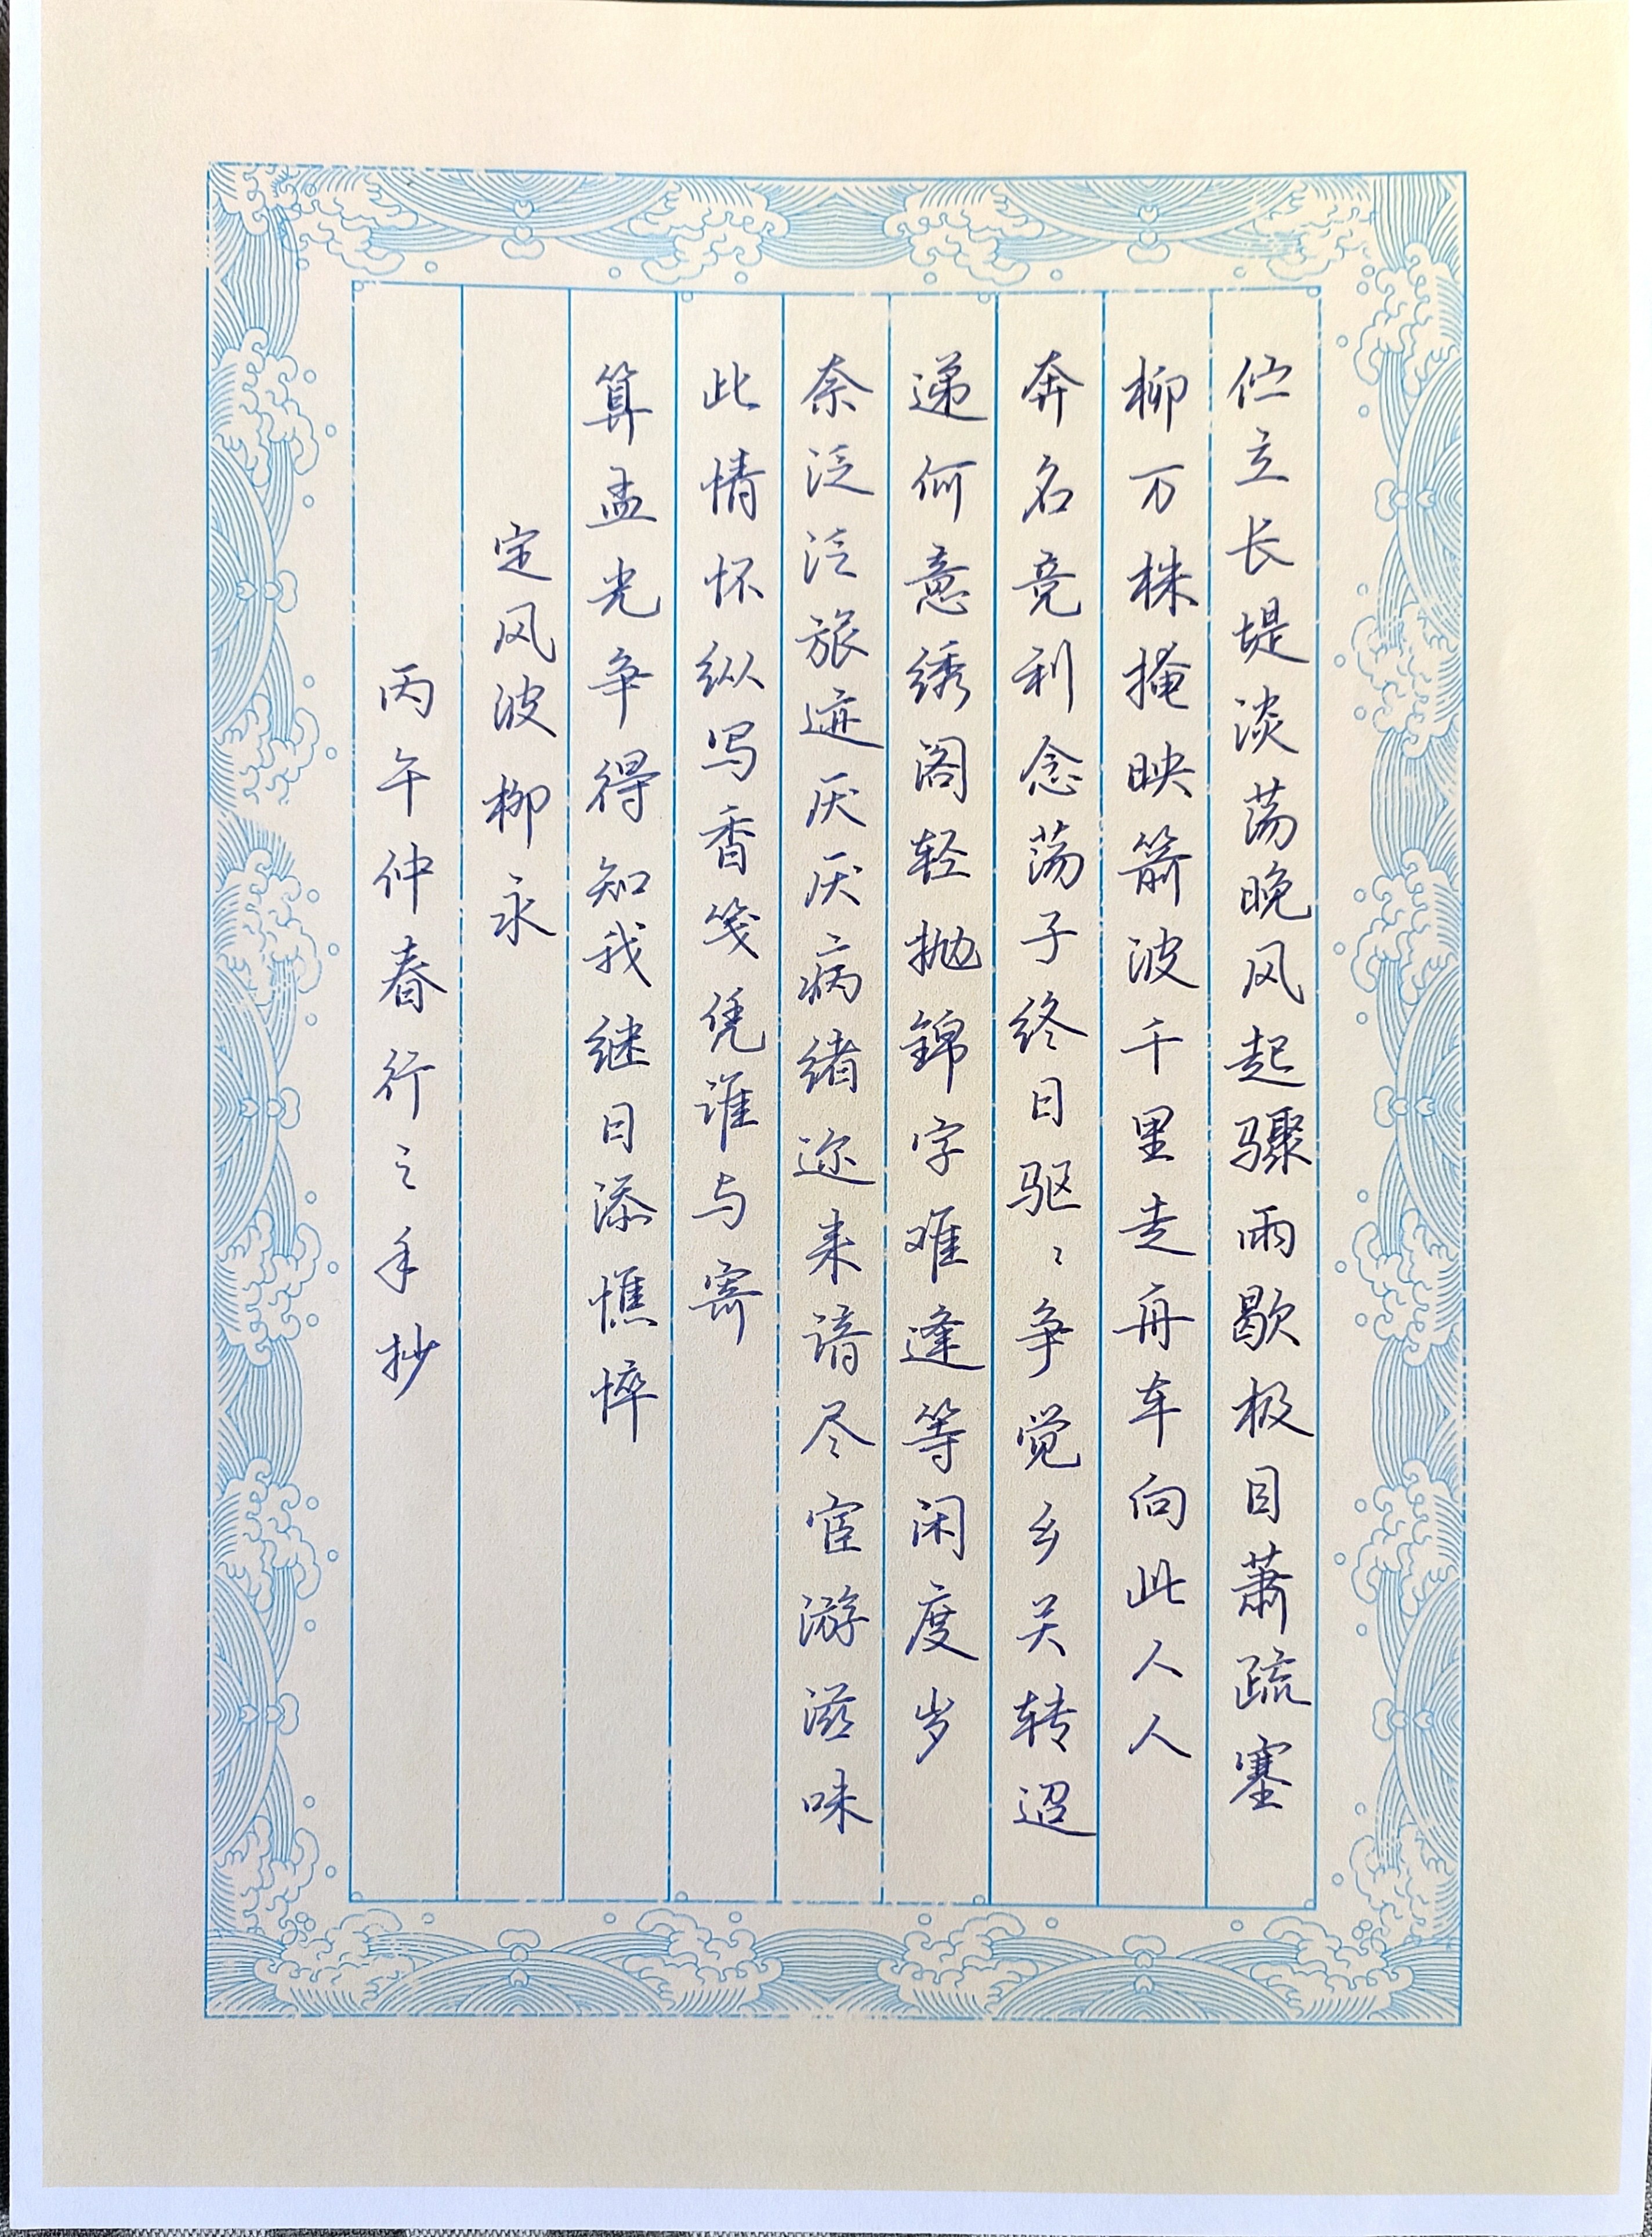 伫立长堤淡荡晚风起骤雨歇极目萧疏塞
柳万株掩映箭波千里走舟车向此人人
奔名竞利念荡子终日驱〻争觉乡关转迢
递何意绣阁轻抛锦字难逢等闲度岁
奈泛泛旅迹厌厌病绪迩来谙尽宦游滋味
此情怀纵写香笺凭谁与寄
算孟光争得知我继日添憔悴
定风波柳永
丙午仲春行之手抄